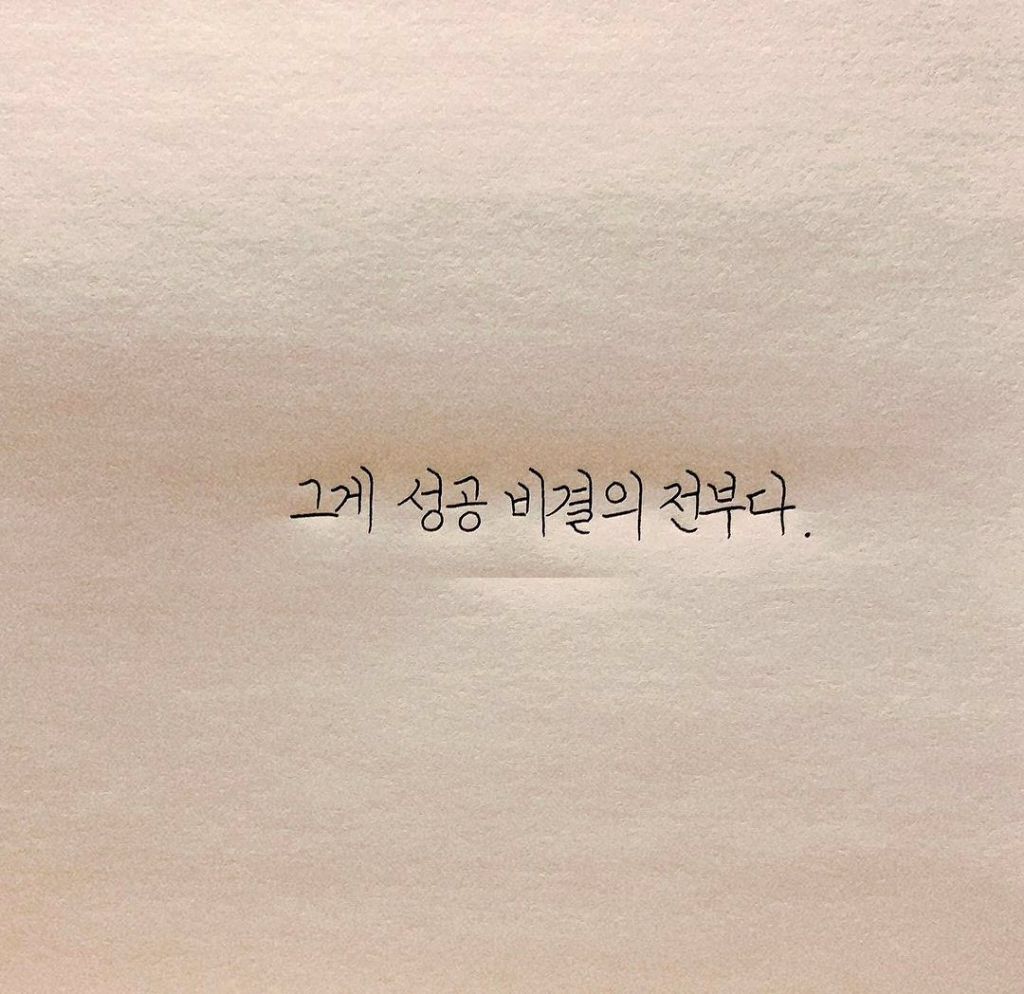 그게 성공 비결의 전부다.